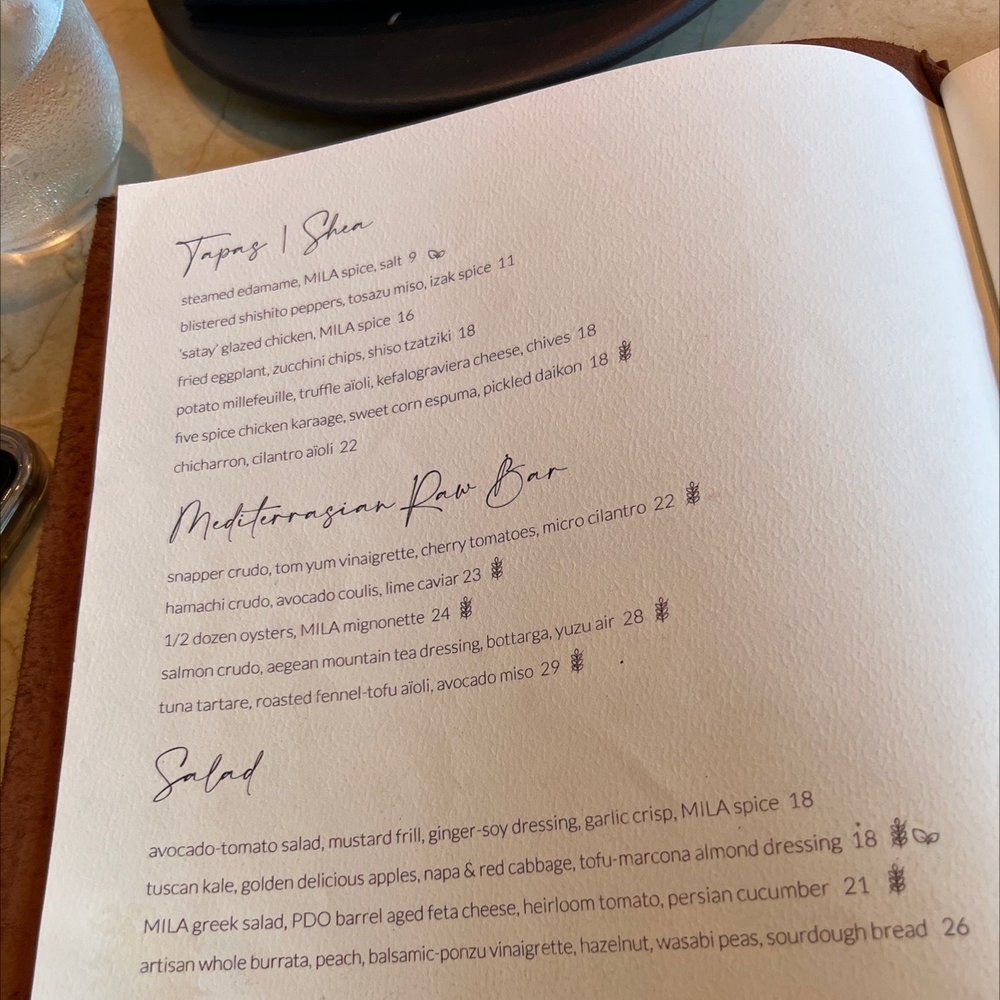 Tapas | Shea
steamed edamame, MILA spice, salt 9
blistered shishito peppers, tosazu miso, izak spice 11
'satay' glazed chicken, MILA spice 16
fried eggplant, zucchini chips, shiso tzatziki 18
potato millefeuille, truffle aïoli, kefalograviera cheese, chives 18
five spice chicken karaage, sweet corn espuma, pickled daikon 18
chicharron, cilantro aïoli 22
Mediterrasian Raw Bar
snapper crudo, tom yum vinaigrette, cherry tomatoes, micro cilantro 22
hamachi crudo, avocado coulis, lime caviar 23
1/2 dozen oysters, MILA mignonette 24
salmon crudo, aegean mountain tea dressing, bottarga, yuzu air 28
tuna tartare, roasted fennel-tofu aïoli, avocado miso 29
Salad
avocado-tomato salad, mustard frill, ginger-soy dressing, garlic crisp, MILA spice 18
tuscan kale, golden delicious apples, napa & red cabbage, tofu-marcona almond dressing 18
MILA greek salad, PDO barrel aged feta cheese, heirloom tomato, persian cucumber 21
artisan whole burrata, peach, balsamic-ponzu vinaigrette, hazelnut, wasabi peas, sourdough bread 26